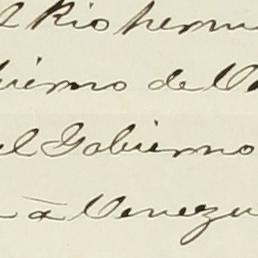 el Rio herm
bierno de V
el Gobierno
a à Venezu